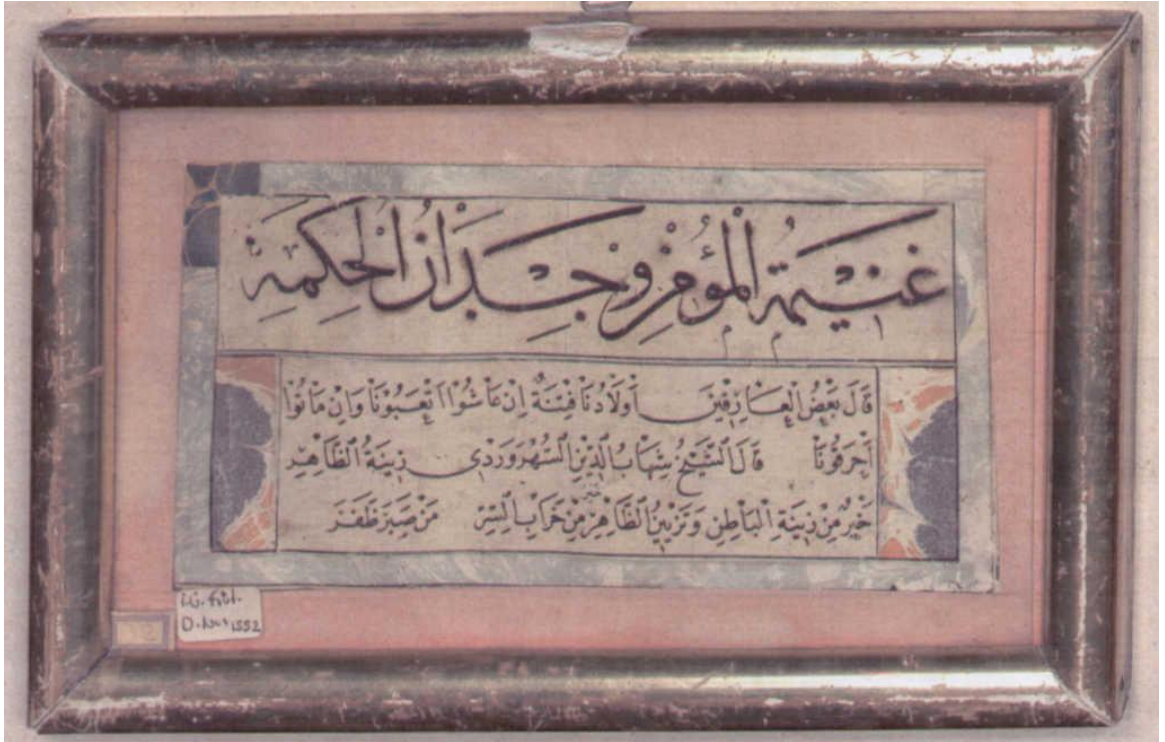 غَنِيمَةُ الْمُؤْمِنِ وِجْدَانُ الْحِكْمَةِ
قَالَ بَعْضُ الْعَارِفِينَ أَوْلَادُنَا فِتْنَةٌ إِنْ عَاشُوا أَتْعَبُونَا وَإِنْ مَاتُوا
أَحْرَقُونَا قَالَ الشَّيْخُ شِهَابُ الدِّينِ السُّهْرَوَرْدِي زِينَةُ الظَّاهِرِ
خَيْرٌ مِنْ زِينَةِ الْبَاطِنِ وَتَزْيِينُ الظَّاهِرِ مِنْ خَرَابِ السِّرِّ مَنْ صَبَرَ ظَفَرَ
1552